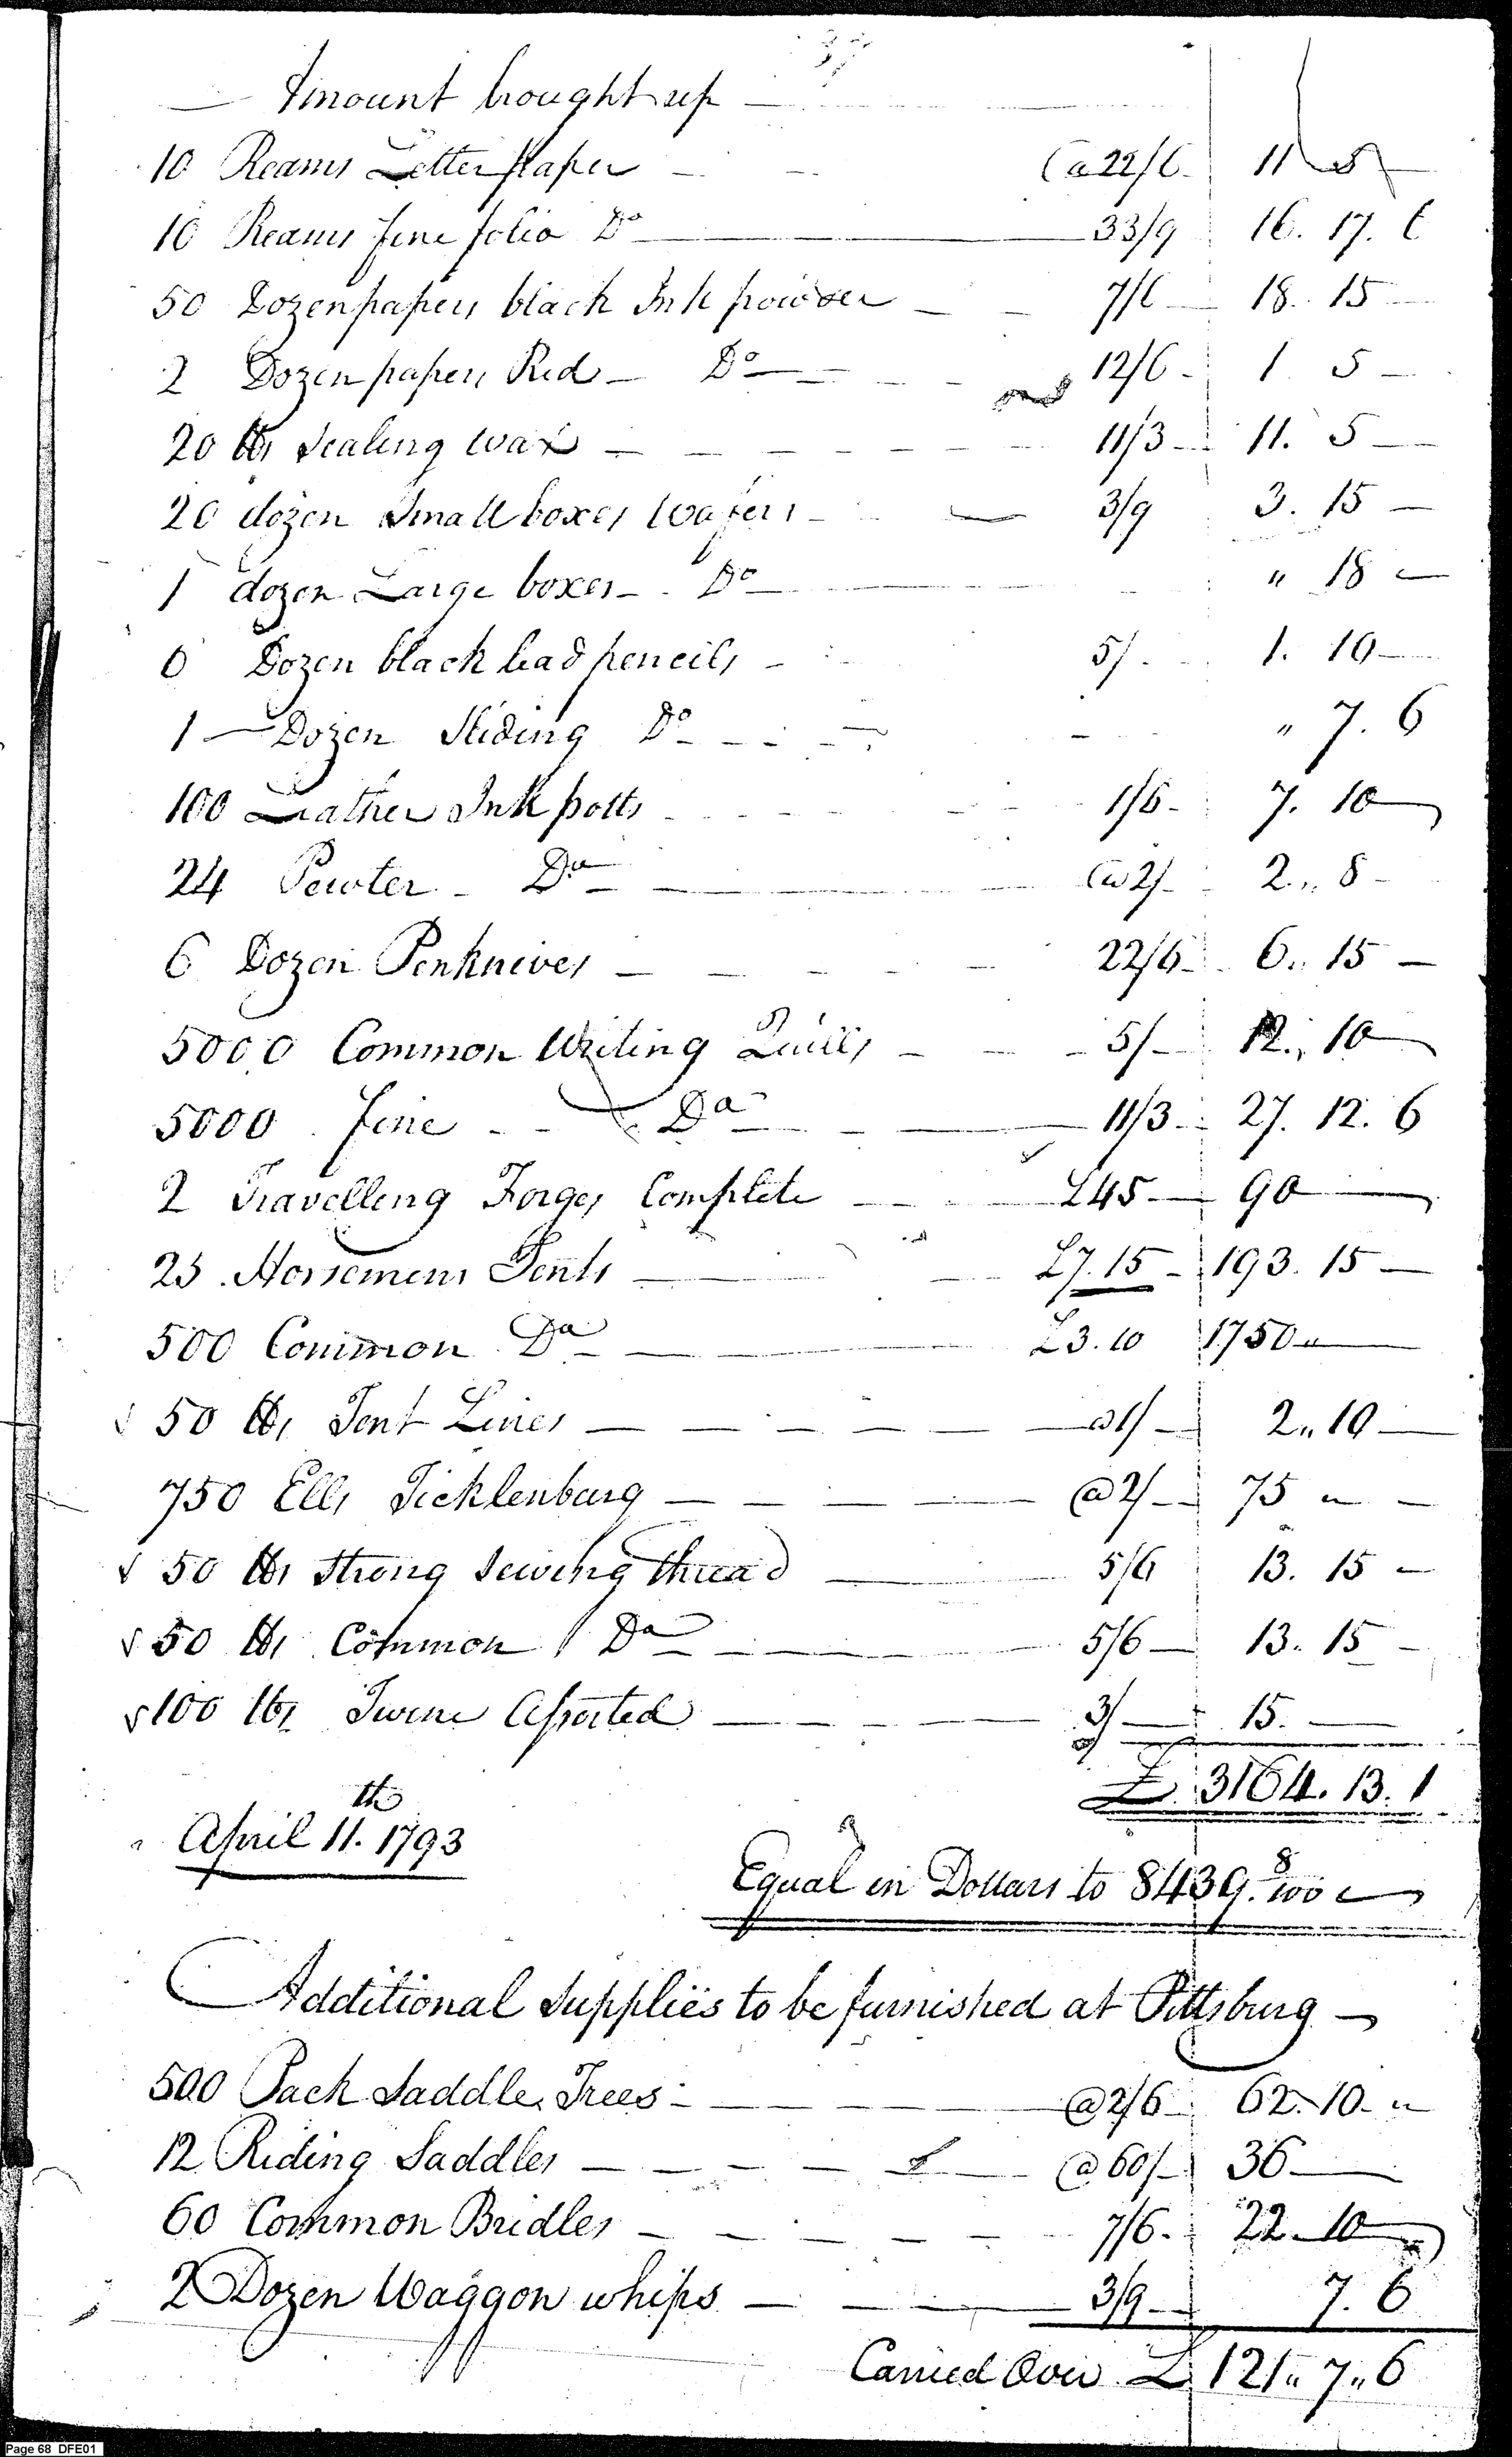 37
Amount brought up
10 Reams Letter paper @ 22/6 11 5
10 Reams fine folio Do 33/9 16. 17. 6
50 Dozen papers black Ink powder 7/6 18. 15
2 Dozen papers Red Do 12/6 1 5
20 lbs Sealing wax 11/3 11. 5
20 dozen Small boxes wafers 3/9 3. 15
1 dozen Large boxes Do " 18
6 Dozen black lead pencils 5/ 1. 10
1 Dozen Sliding Do " 7. 6
100 Leather Ink potts 1/6 7. 10
24 Pewter Do @ 2/ 2 " 8
6 Dozen Penknives 22/6 6 " 15
5000 Common Writing Quills 5/ 12 " 10
5000 fine Do 11/3 27. 12. 6
2 Travelling Forges Complete £45 90
25 Horsemens Tents £7.15 193. 15
500 Common Do £3.10 1750 "
50 lbs Tent Lines @ 1/ 2 " 10
750 Ells Ticklenburg @ 2/ 75 "
50 lbs Strong Sewing thread 5/6 13. 15
50 lbs Common Do 5/6 13. 15
100 lbs Twine Assorted 3/ 15.
£ 3164. 13. 1
April 11.th 1793
Equal in Dollars to 8439. 8/100
Additional Supplies to be furnished at Pittsburg
500 Pack Saddle Trees @ 2/6 62. 10. "
12 Riding Saddles @ 60/ 36
60 Common Bridles 7/6 22. 10
2 Dozen Waggon whips 3/9 7. 6
Carried Over £ 121 " 7 " 6
Page 68 DFE01